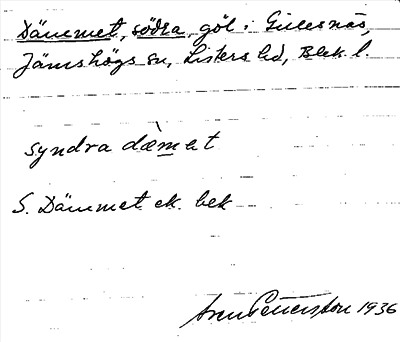 Dämmet, södra, göl i Gillesnäs,
Jämshögs sn, Listers hd, Blek. l.
syndra dæ̀met
S. Dämmet ek. bek
Sven Petersson 1936